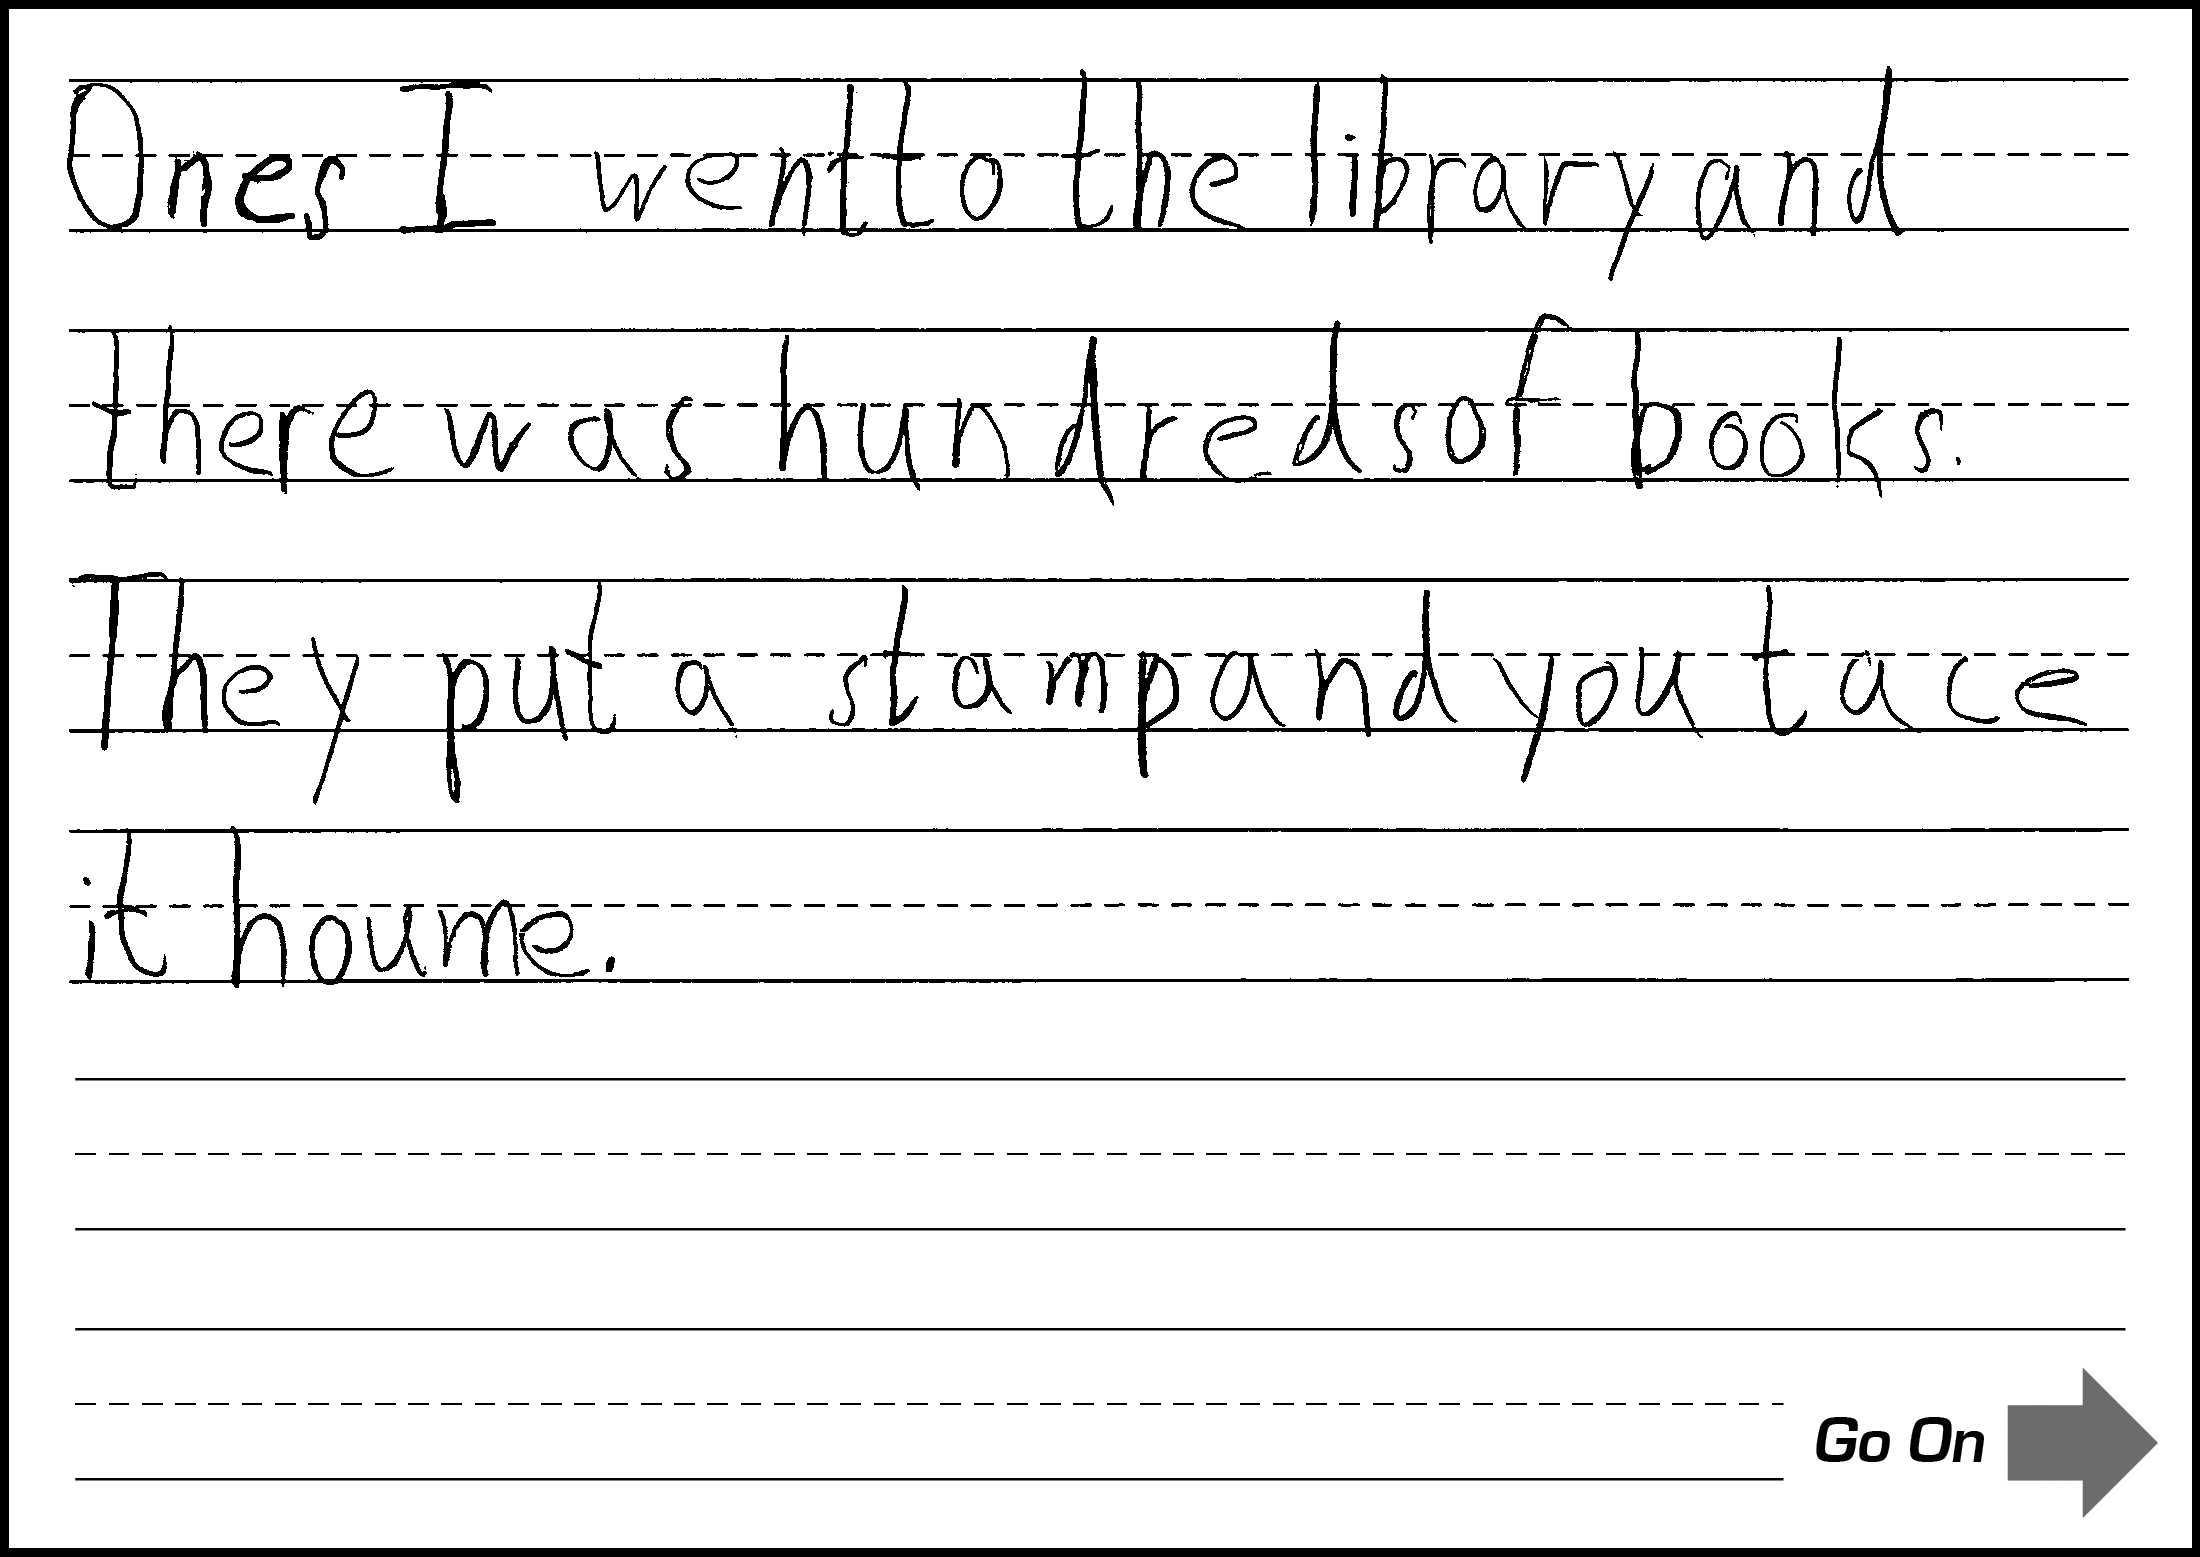 Ones I went to the library and
there was hundreds of books.
They put a stamp and you tace
it houme.
Go On